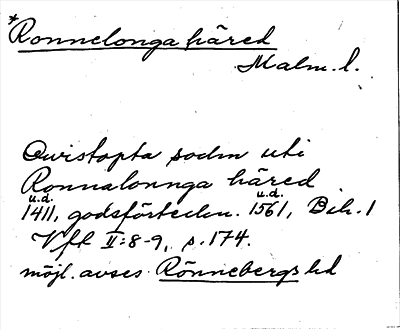 *Ronnelonga häred
Malm. l.
Qwistopta sockn uti
Ronnalonnga häred
u.d. u.d.
1411, godsförteckn. 1561, Bih. 1
Vfl II:8-9, s. 174.
möjl. avses Rönnebergs hd